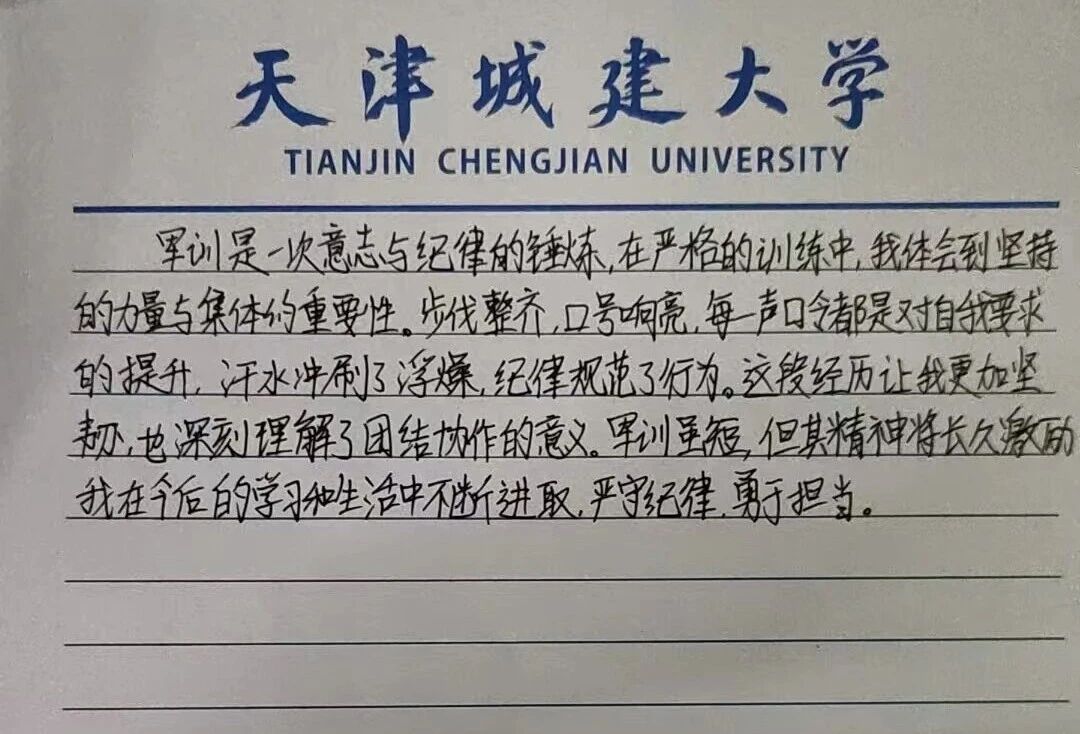 天津城建大学
TIANJIN CHENGJIAN UNIVERSITY
军训是一次意志与纪律的锤炼,在严格的训练中,我体会到坚持
的力量与集体的重要性。步伐整齐,口号响亮,每一声口令都是对自我要求
的提升,汗水冲刷了浮燥,纪律规范了行为。这段经历让我更加坚
韧,也深刻理解了团结协作的意义。军训虽短,但其精神将长久激励
我在今后的学习和生活中不断进取,严守纪律,勇于担当。